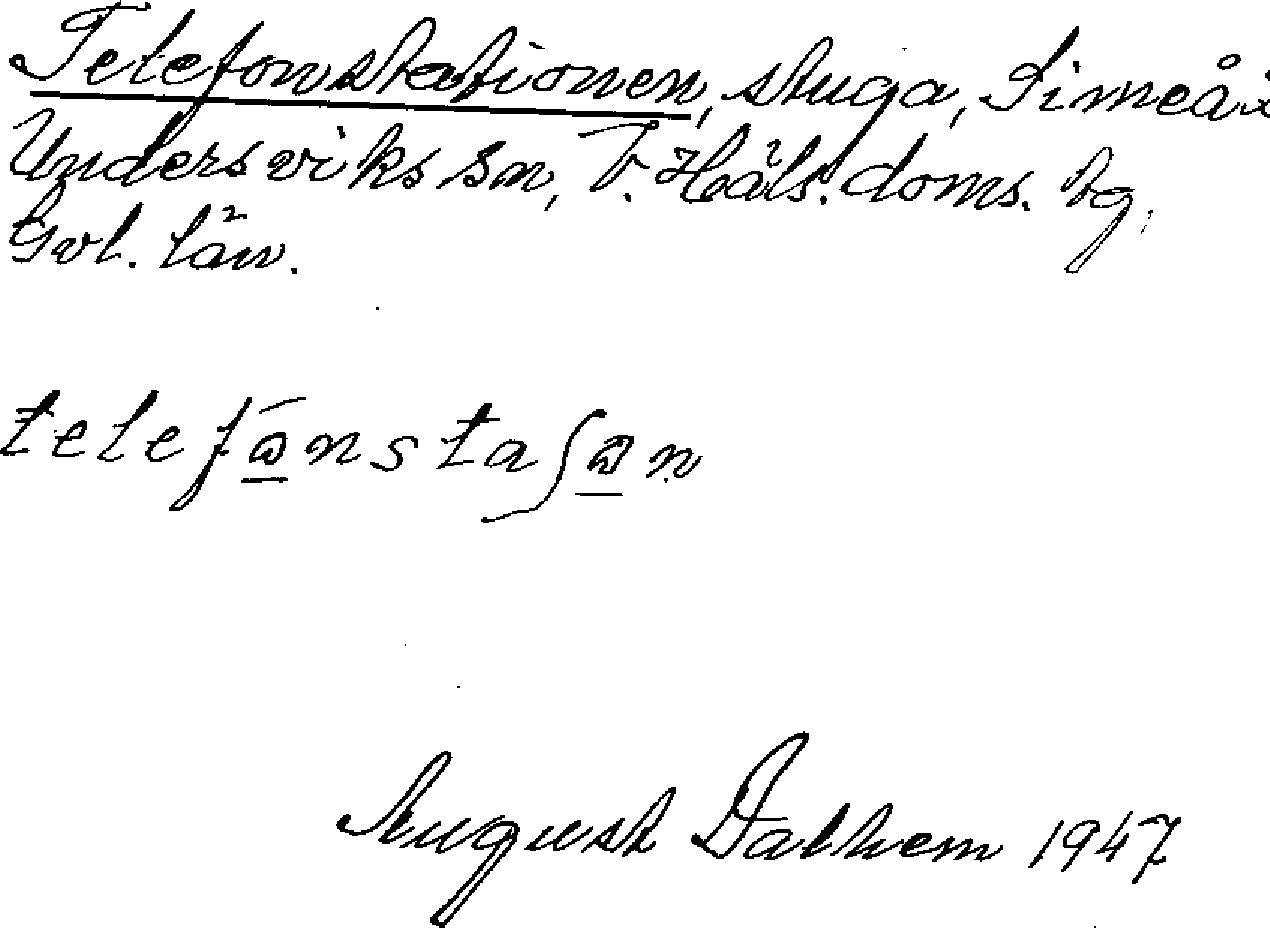 Telefonstationen, stuga, Simeå i
Undersviks sn, V. Häls. doms. tg,
Gvl. län.
telefɷ́nstaʃɷn
August Dalhem 1947